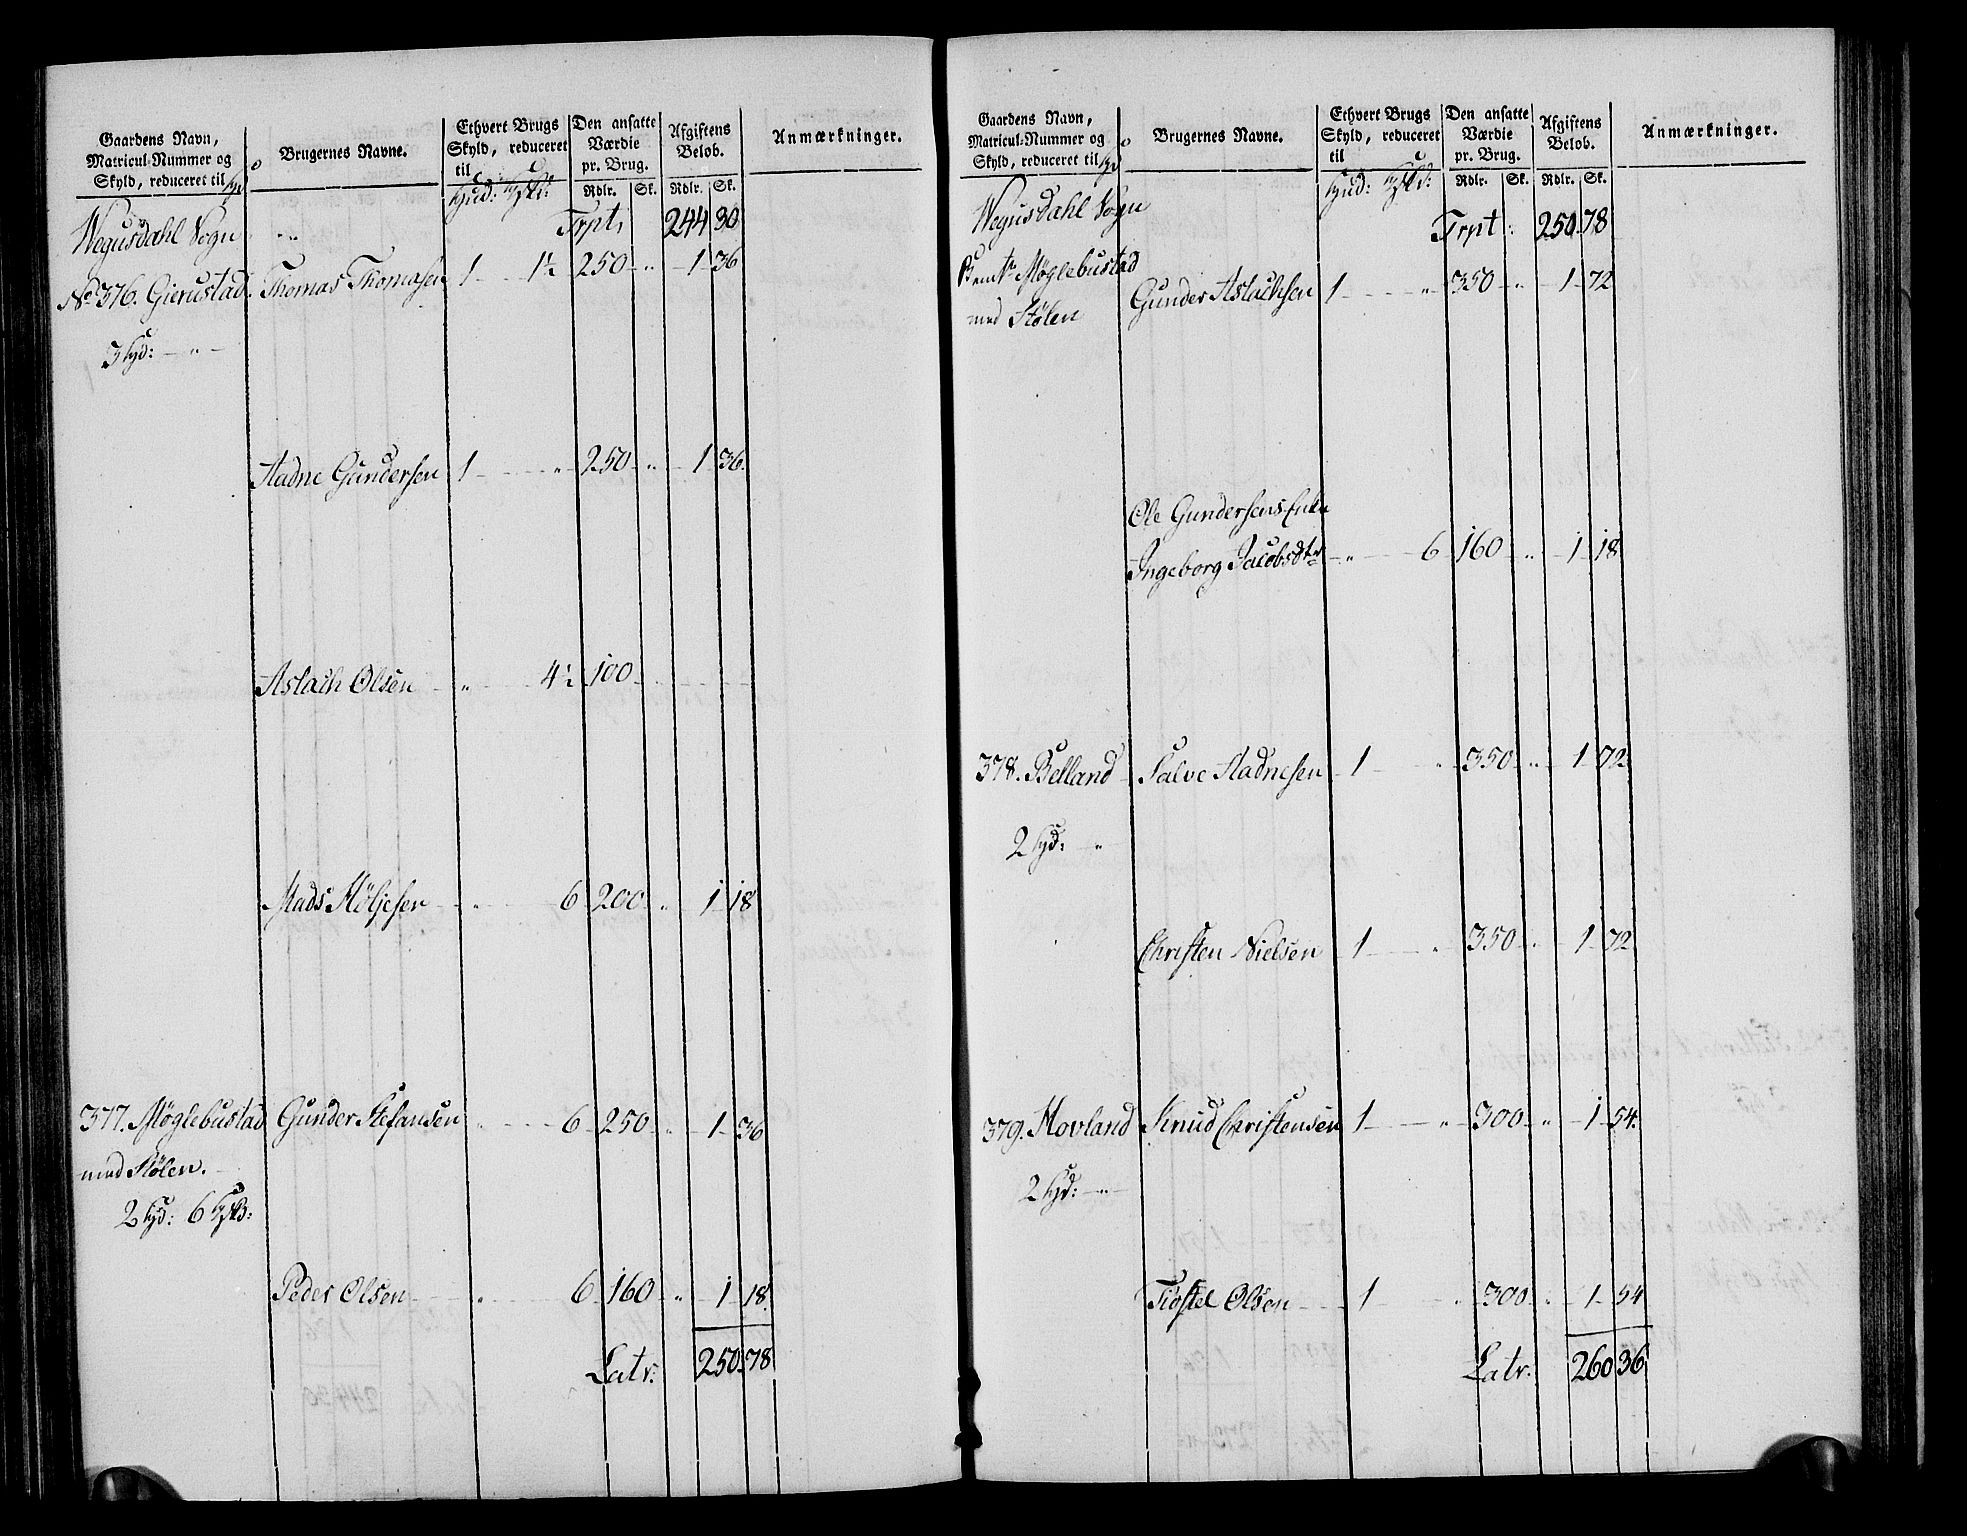 Gaardens Navn,
Matricul-Nummer og
Skyld, reduceret til
Brugernes Navne.
Ethvert Brugs
Skyld, reduceret
til
Den ansatte
Værdie
pr. Brug.
Afgiftens
Beløb.
Anmærkninger.
Rdlr. Sk. Rdlr. Sk.
Wegusdahl Sogn Trpt, 244 30
No 376. Gierustad Thomas Thomasen 1 - 1½ 250 - " - 1 - 36
3 Hd: - " -
Aadne Gundersen 1 - " - 250 - " - 1 - 36.
Aslach Olsen - " - 4½ 100
Mads Höljesen - " - 6 200 - " - 1 - 18
377. Møglebustad Gunder Stefansen - " - 6 250 - " - 1 - 36
med Stølen.
2 Hd: 6
Peder Olsen - " - 6 160 - " - 1 18.
Latr: 250. 78
Gaardens Navn,
Matricul-Nummer og
Skyld, reduceret til
Brugernes Navne.
Ethvert Brugs
Skyld, reduceret
til
Den ansatte
Værdie
pr. Brug.
Afgiftens
Beløb.
Anmærkninger.
Rdlr. Sk. Rdlr. Sk.
Wegusdahl Sogn Trpt : 250. 78
Møglebustad
med Stølen Gunder Aslachsen 1 - " - 350 - " - 1 - 72
Ole Gundersens Enke
Ingeborg Jacobsdtr - " - 6 160 - " - 1 - 18
378. Belland Salve Aadnesen 1 - " - 350 - " - 1 - 72
2 Hd: "
Christen Nielsen 1 - " - 350 - " - 1 - 72
379. Hovland Knud Christensen 1 - " - 300 - " - 1 - 54.
2 Hd: - " -
Tiöstel Olsen 1 - " - 300 - " - 1 - 54
Latr: 260 36